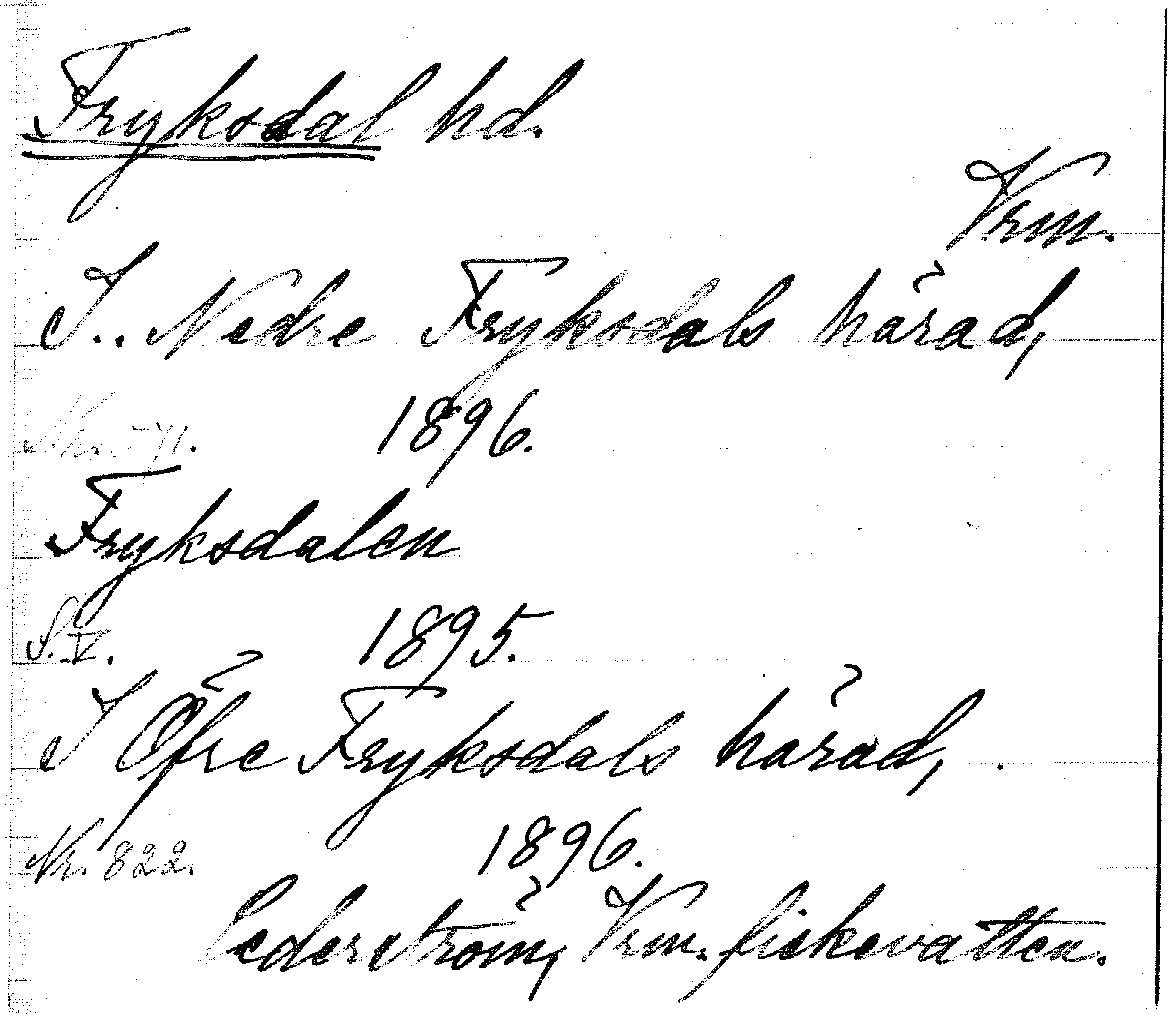 Fryksdal hd.
Vrm.
I.. Nedre Fryksdals härad,
1896.
Fryksdalen
S. V. 1895.
I Öfre Fryksdals härad,
Nr. 822. 1896.
Cederström, Vrm. fiskevatten.